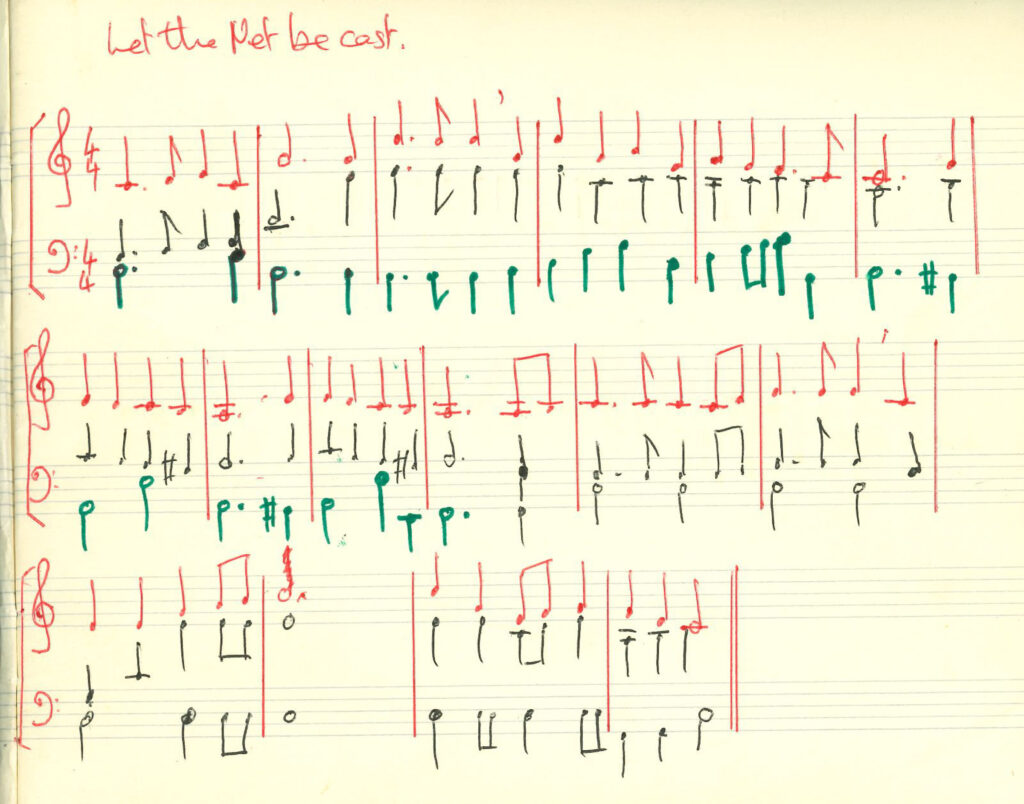 Let the Net be cast.
4
4
4
4